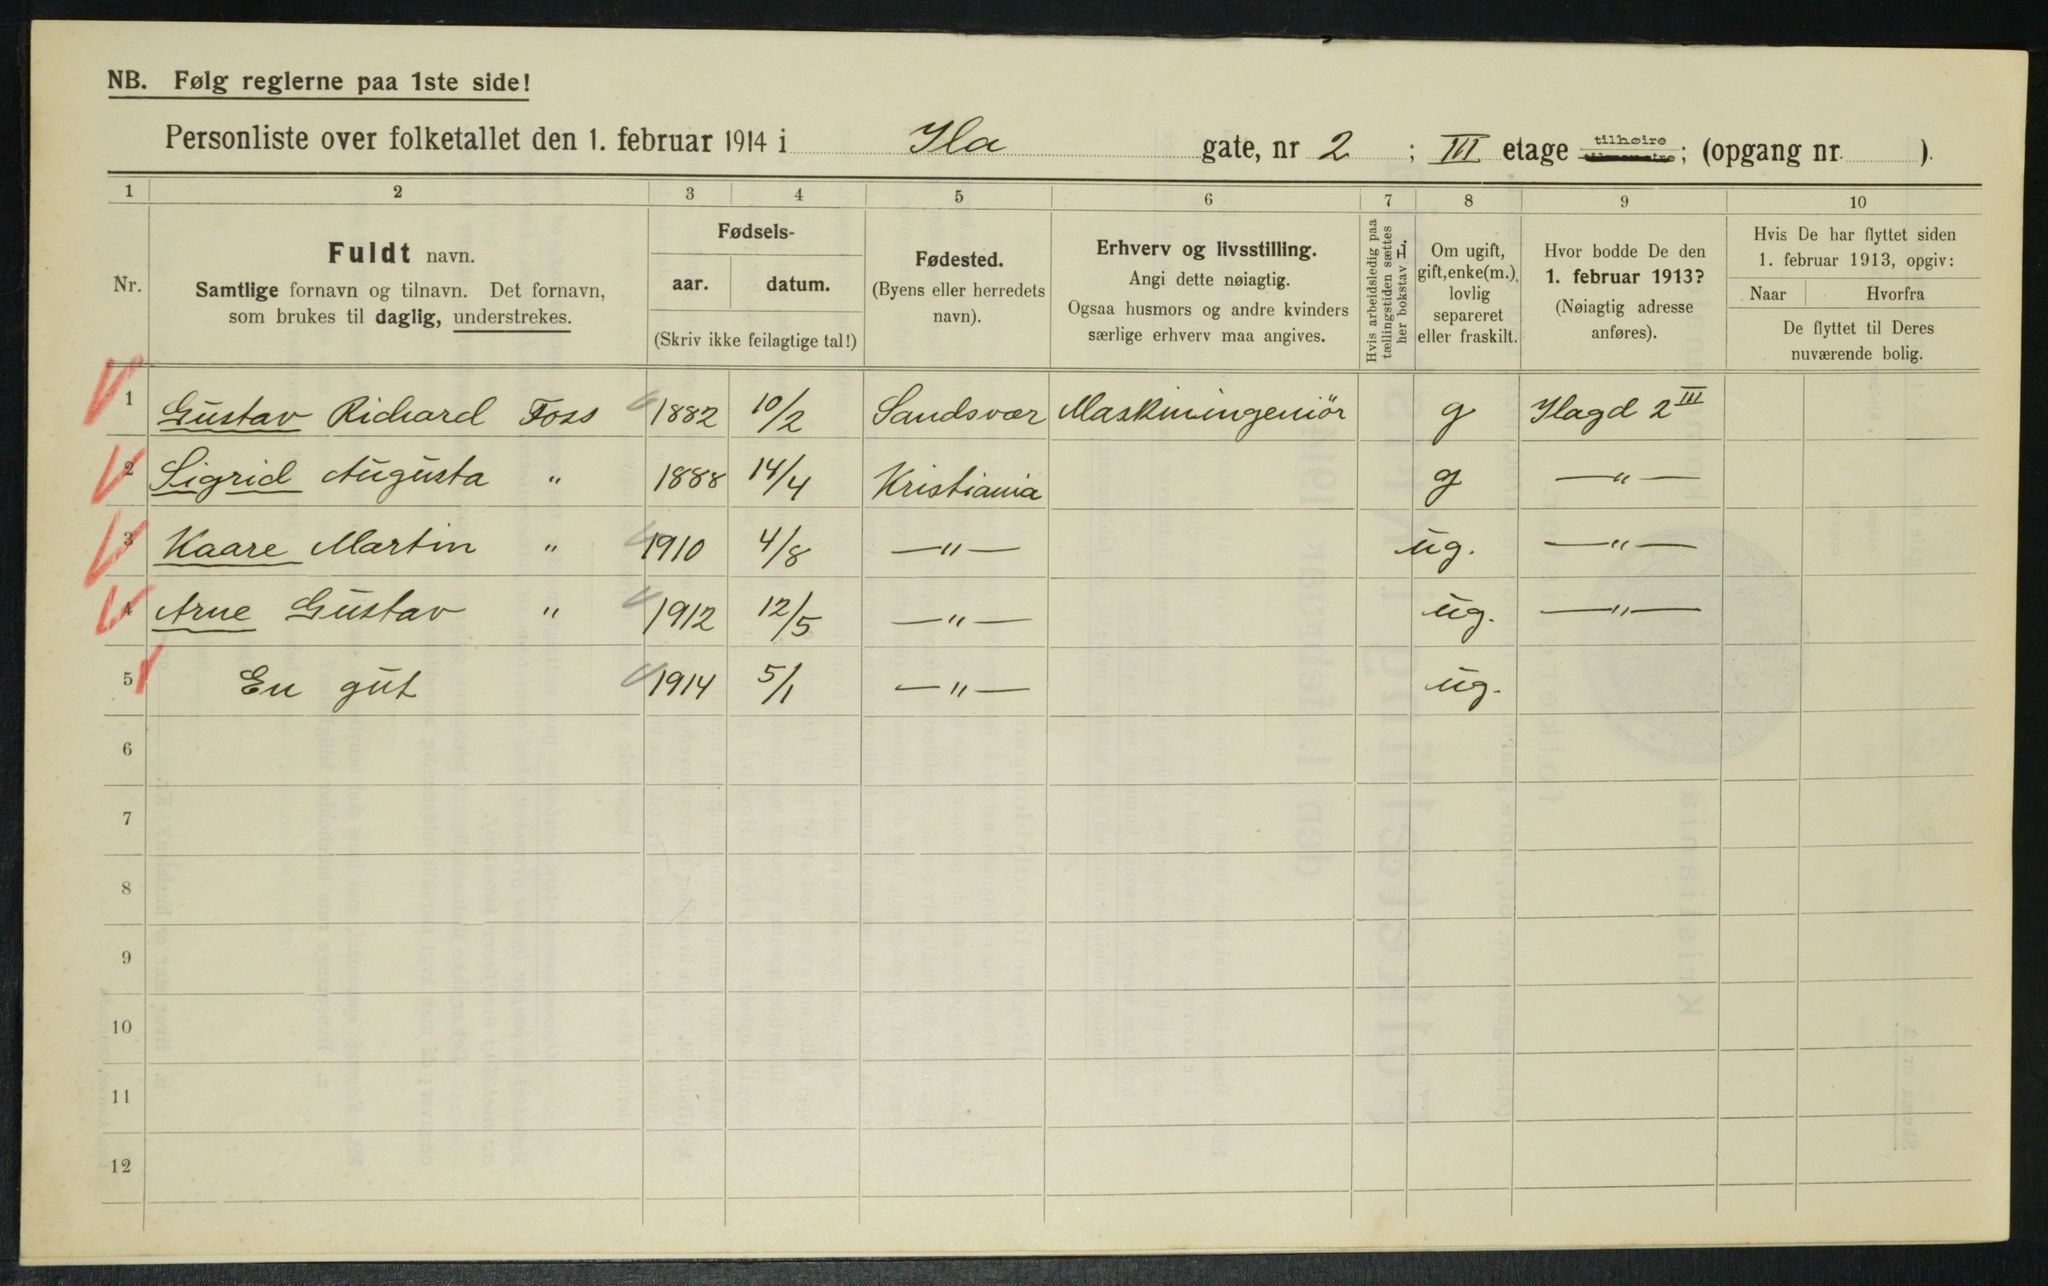 NB. Følg reglerne paa 1ste side!
Personliste over folketallet den 1. februar 1914 i Ila gate, nr 2 ; III etage tilhøire ; (opgang nr. ).
1 2 3 4 5 6 7 8 9 10
Nr.
Fuldt navn.
Samtlige fornavn og tilnavn. Det fornavn,
som brukes til daglig, understrekes.
Fødsels-
aar. datum.
(Skriv ikke feilagtige tal!)
Fødested.
(Byens eller herredets
navn).
Erhverv og livsstilling.
Angi dette nøiagtig.
Ogsaa husmors og andre kvinders
særlige erhverv maa angives.
Hvis arbeidsledig paa
tællingstiden sættes
her bokstav
Om ugift,
gift, enke(m.),
lovlig
separeret
eller fraskilt.
Hvor bodde De den
1. februar 1913?
(Nøiagtig adresse
anføres).
Hvis De har flyttet siden
1. februar 1913, opgiv:
Naar Hvorfra
De flyttet til Deres
nuværende bolig.
1 Gustav Richard Foss 1882 10/2 Sandsvær Maskiningeniör g Ilagd 2 III
2 Sigrid Augusta " 1888 14/4 Kristiania g —"—
3 Kaare Martin " 1910 4/8 —"— ug. —"—
4 Arne Gustav " 1912 12/5 —"— ug. —"—
5 En gut 1914 5/1 —"— ug.
6
7
8
9
10
11
12